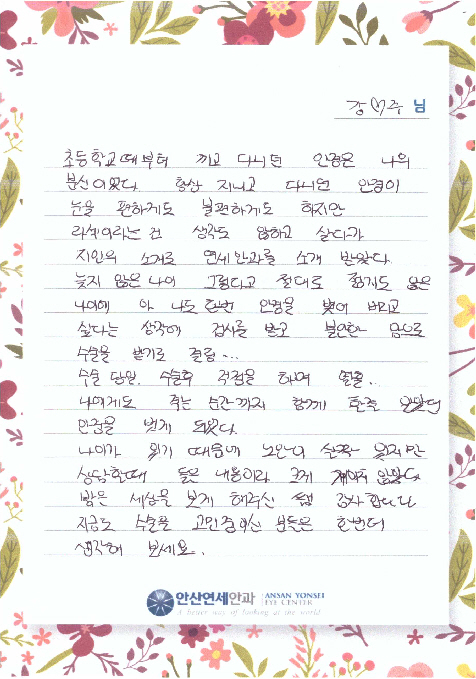 강♡주 님
초등학교때부터 끼고 다니던 안경은 나의
분신이였다. 항상 지니고 다니던 안경이
눈을 편하게도 불편하게도 하지만
라섹이라는 건 생각도 않하고 살다가
지인의 소개로 연세안과를 소개 받았다
늦지 않은 나이 그렇다고 절대로 젊지도 않은
나이에 아 나도 한번 안경을 벗어 버리고
싶다는 생각에 검사를 받고 불안한 맘으로
수술을 받기로 결정...
수술 당일. 수술후 걱정을 하며
나에게도 죽는 순간까지 함께 할줄 알았던
안경을 벗게 되였다.
나이가 있기 때문에 노안이 살짝 있지만
상담할때 들은 내용이라 크게 않았다
밝은 세상을 보게 해주신 감사합니다
지금도 수술을 고민중이신 분들은 한번더
생각해 보세요.
안산연세안과 ANSAN YONSEI
EYE CENTER
A better way of looking at the world